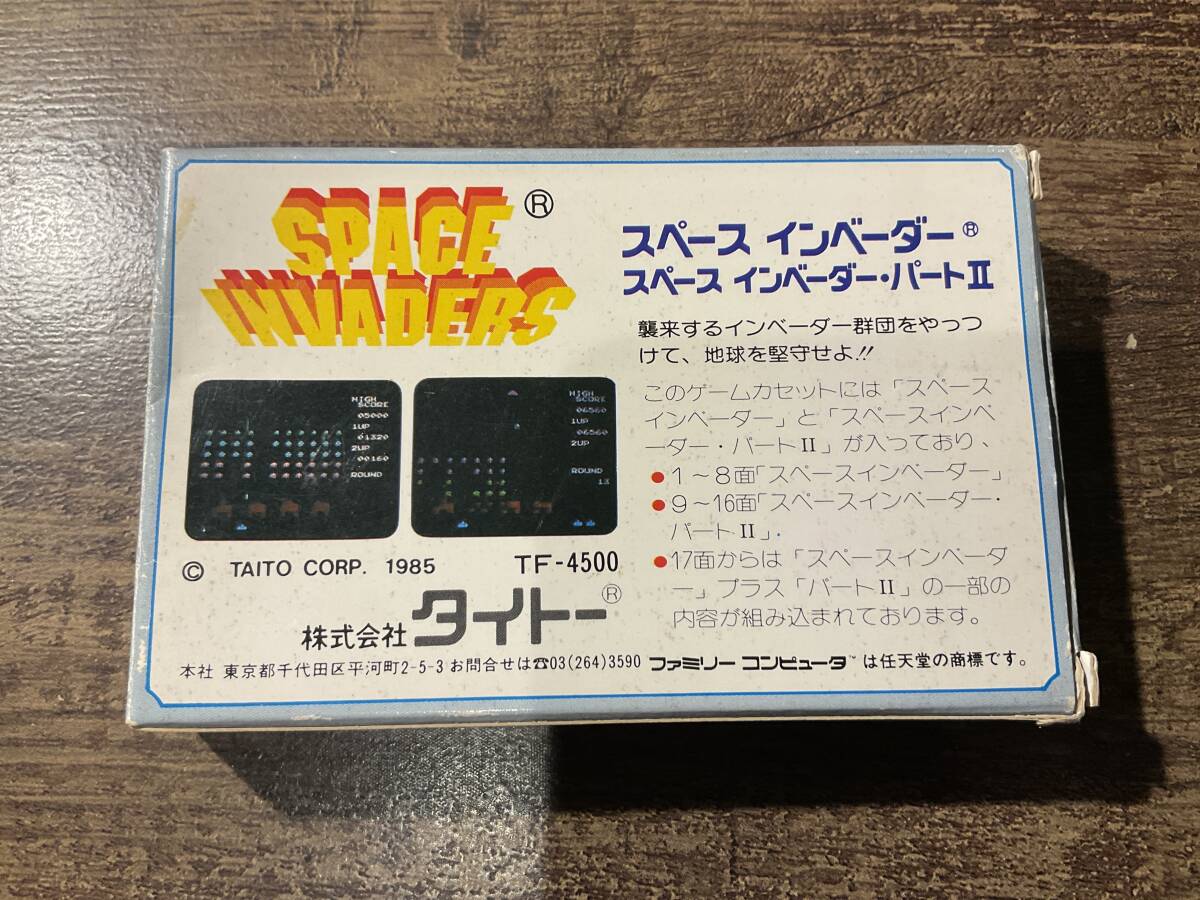 SPACE ®
INVADERS
スペース インベーダー®
スペース インベーダー・パートII
襲来するインベーダー群団をやっつ
けて、地球を堅守せよ!!
このゲームカセットには「スペース
インベーダー」と「スペースインベ
ーダー・パートII」が入っており、
●1～8面「スペースインベーダー」
●9～16面「スペースインベーダー・
パートII」.
●17面からは「スペースインベーダ
ー」プラス「パートII」の一部の
内容が組み込まれております。
HIGH
SCORE
05000
1UP
01320
2UP
00160
ROUND
HIGH
SCORE
06560
1UP
06560
2UP
ROUND
13
© TAITO CORP. 1985 TF-4500
株式会社 タイトー®
本社 東京都千代田区平河町2-5-3 お問合せは☎03(264)3590 ファミリー コンピュータ™は任天堂の商標です。